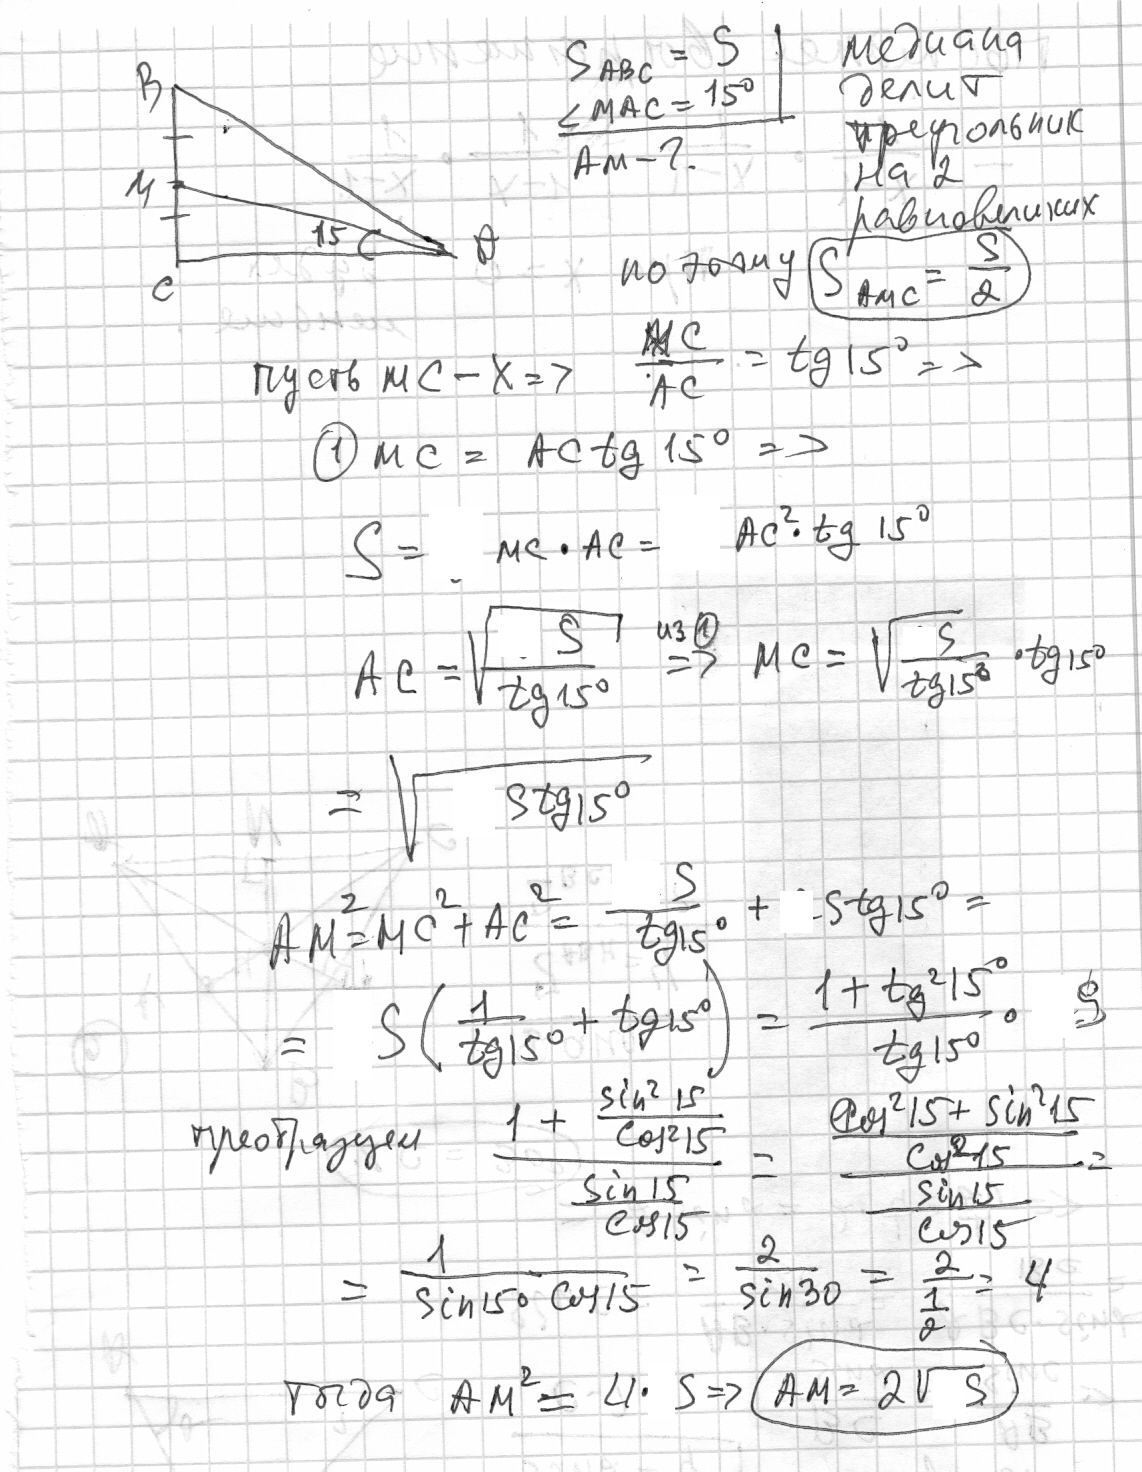 B
M
15
A
C
S_ABC = S
∠MAC = 15°
AM - ?
медиана
делит
треугольник
на 2
равновеликих
поэтому S_AMC = S/2
пусть MC - X => MC/AC = tg 15° =>
① MC = AC tg 15° =>
S = MC · AC = AC² · tg 15°
AC = √(S/tg15°) из ① => MC = √(S/tg15°) · tg15°
= √(S tg15°)
AM² = MC² + AC² = S/tg15° + S tg15° =
= S(1/tg15° + tg15°) = (1 + tg²15°)/tg15° · S
преобразуем (1 + sin²15/cos²15)/(sin15/cos15) = ((cos²15 + sin²15)/cos²15)/(sin15/cos15) =
= 1/(sin15° cos15) = 2/sin30 = 2/(1/2) = 4
тогда AM² = 4 · S => AM = 2√S